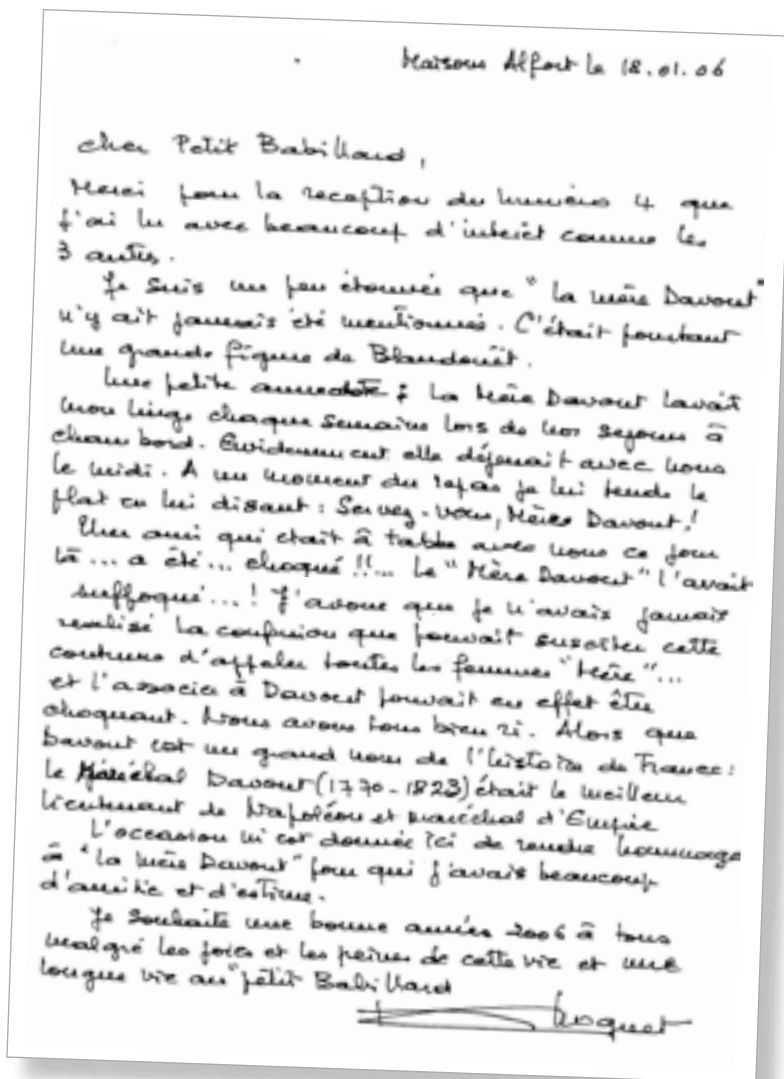 Maisons Alfort le 18.01.06
cher Petit Babillard,
Merci pour la reception du numéro 4 que
j'ai lu avec beaucoup d'interêt comme les
3 autres.
Je suis un peu étonnée que "la mère Davout"
n'y ait jamais été mentionnée. C'était pourtant
une grande figure de Blandouët.
Une petite annecdote : La Mère Davout lavait
mon linge chaque semaine lors de nos sejours à
chambord. Evidemment elle déjeunait avec nous
le midi. A un moment du repas je lui tends le
plat en lui disant : Servez-vous, Mère Davout !
Un ami qui était à table avec nous ce jour
là... a été... choqué !!... Le "Mère Davout" l'avait
suffoqué...! J'avoue que je n'avais jamais
realisé la confusion que pouvait susciter cette
coutume d'appeler toutes les femmes "Mère"...
et l'associer à Davout pouvait en effet être
choquant. Nous avons tous bien ri. Alors que
Davout est un grand nom de l'histoire de France :
le Maréchal Davout (1770-1823) était le meilleur
lieutenant de Napoléon et maréchal d'Empire
L'occasion m'est donnée ici de rendre hommage
à "la mère Davout" pour qui j'avais beaucoup
d'amitié et d'estime.
Je souhaite une bonne année 2006 à tous
malgré les joies et les peines de cette vie et une
longue vie au "petit Babillard